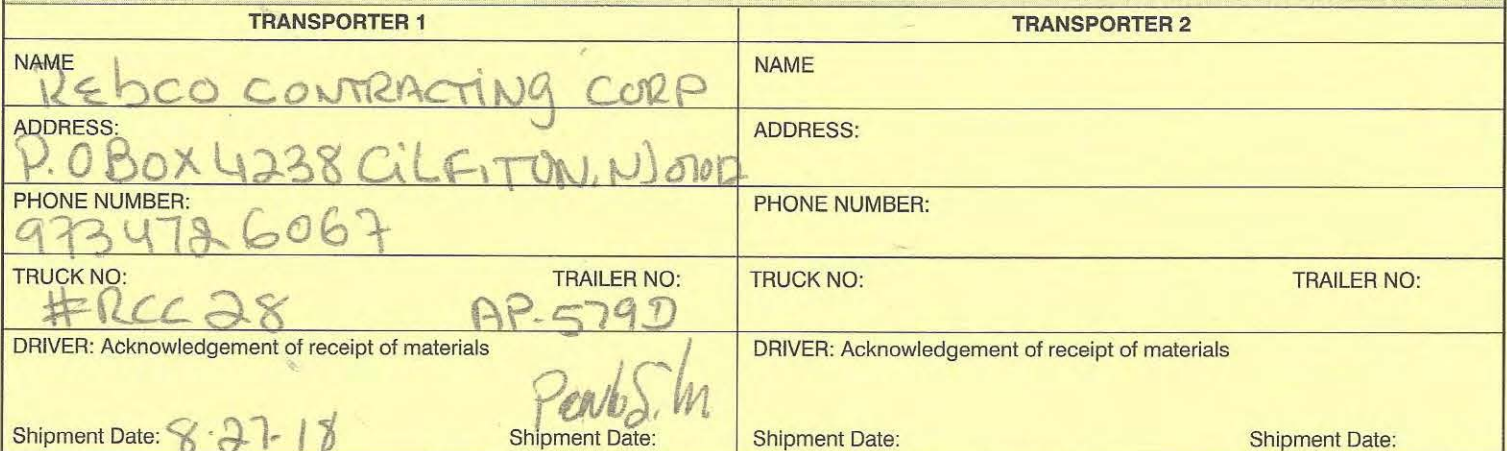 TRANSPORTER 1
TRANSPORTER 2
NAME
REbCO CONTRACTiNg CORP
NAME
ADDRESS:
P.O BOX 4238 CiLFiTON, NJ
ADDRESS:
PHONE NUMBER:
973 472 6067
PHONE NUMBER:
TRUCK NO: TRAILER NO:
#RCC 28 AP-579D
TRUCK NO: TRAILER NO:
DRIVER: Acknowledgement of receipt of materials
Shipment Date: 8-27-18 Shipment Date:
DRIVER: Acknowledgement of receipt of materials
Shipment Date: Shipment Date: